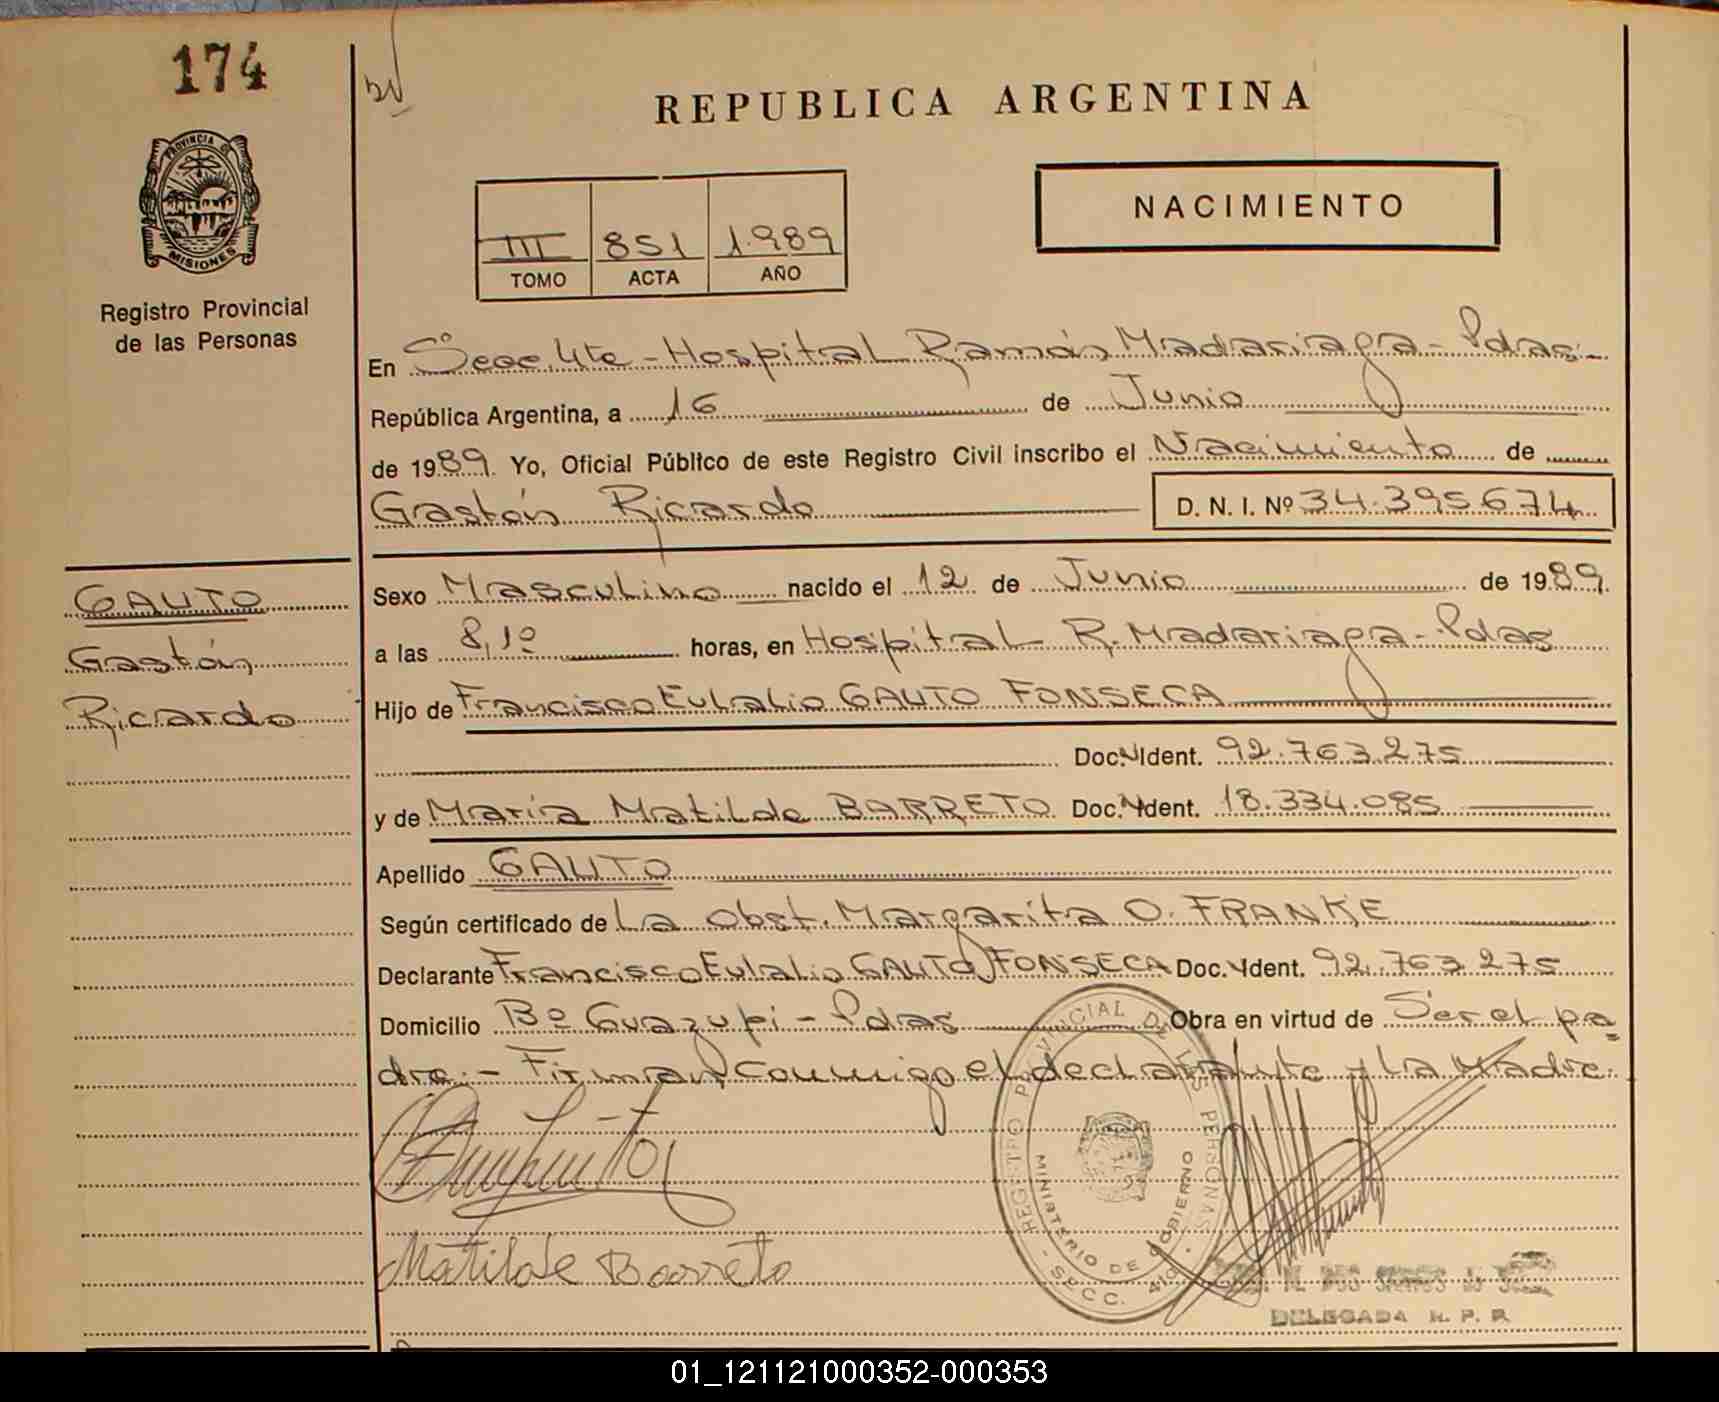 174
REPUBLICA ARGENTINA
PROVINCIA DE MISIONES
NACIMIENTO
III 851 1.989
TOMO ACTA AÑO
Registro Provincial
de las Personas
En Secc. 4ta - Hospital Ramón Madariaga - Pdas.-
República Argentina, a 16 de Junio
de 1989. Yo, Oficial Público de este Registro Civil inscribo el Nacimiento de
Gastón Ricardo D. N. I. Nº 34.395.674
GAUTO
Gastón
Ricardo
Sexo Masculino nacido el 12 de Junio de 1989.
a las 8,10 horas, en Hospital R. Madariaga - Pdas
Hijo de Francisco Eulalio GAUTO FONSECA
Doc. Ident. 92.763.275
y de María Matilde BARRETO Doc. Ident. 18.334.085
Apellido GAUTO
Según certificado de La Obst. Margarita O. FRANKE
Declarante Francisco Eulalio GAUTO FONSECA Doc. Ident. 92.763.275
Domicilio Bº Guazupi - Pdas Obra en virtud de Ser el pa
dre.- Firman conmigo el declarante y la Madre.
REGISTRO PROVINCIAL DE LAS PERSONAS
MINISTERIO DE GOBIERNO
SECC.
Matilde Barreto
DELEGADA R. P. P.
01_121121000352-000353